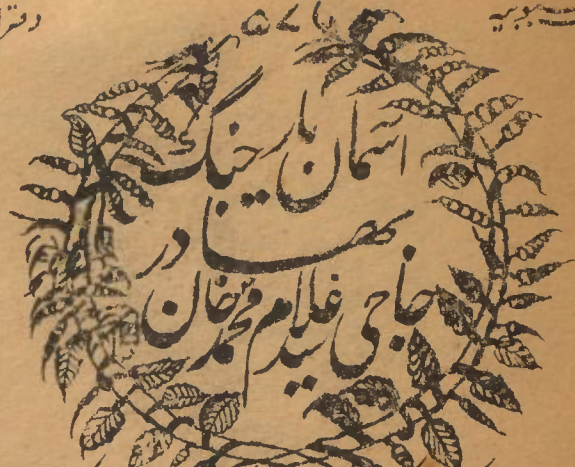 آسمان یار جنگ
بہادر
حاجی سید غلام محمد خان